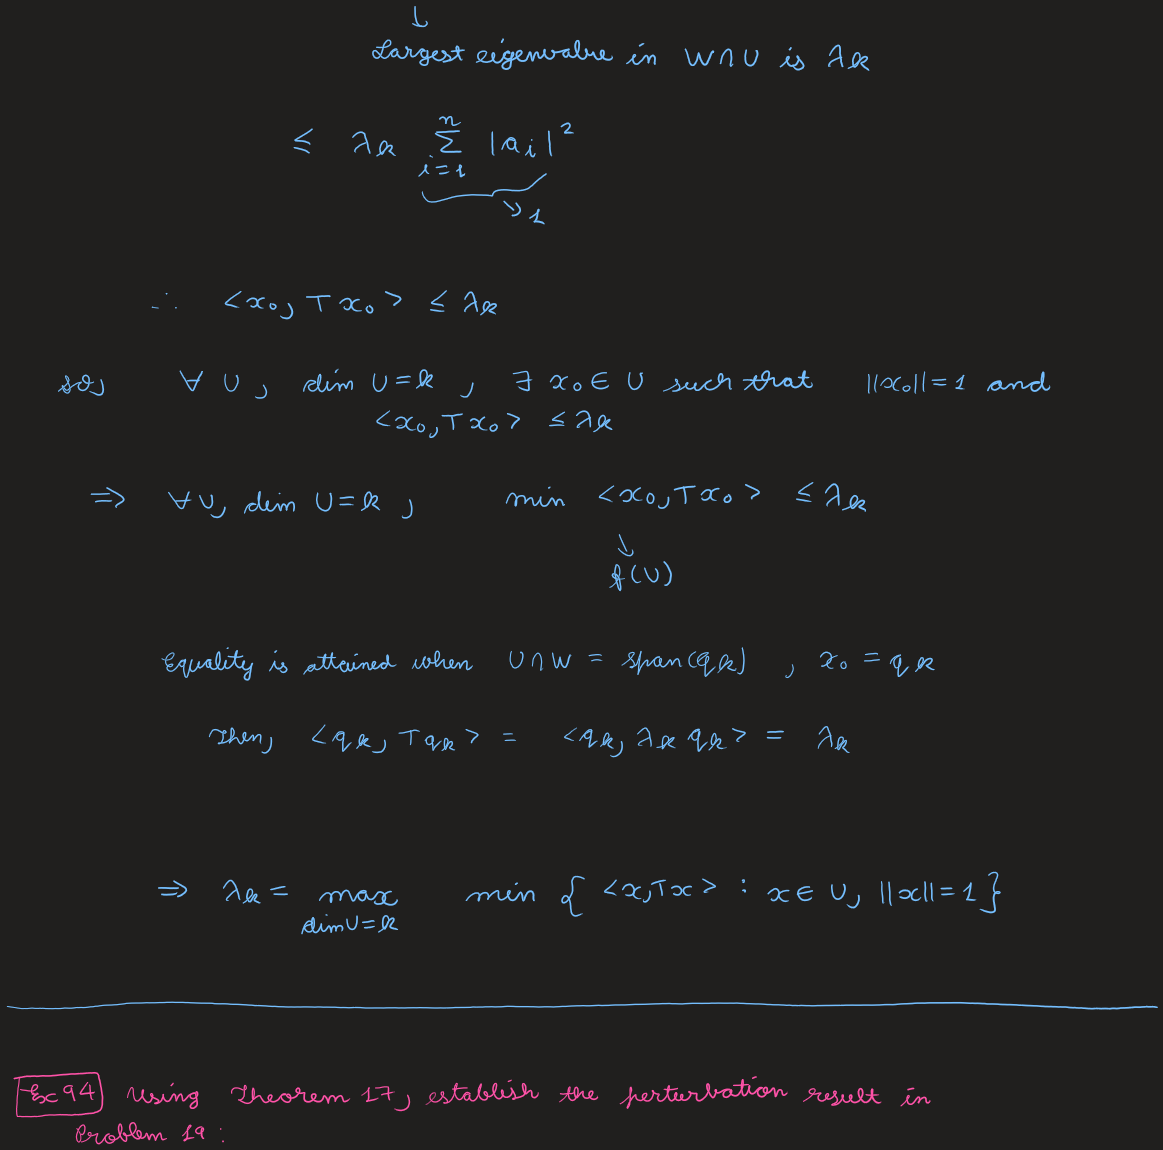 ↓
Largest eigenvalue in W∩U is λk
≤ λk Σ_{i=1}^{n} |ai|²
↘ 1
∴ <x₀, Tx₀> ≤ λk
so, ∀ U, dim U = k, ∃ x₀ ∈ U such that ||x₀|| = 1 and
<x₀, Tx₀> ≤ λk
⇒ ∀ U, dim U = k, min <x₀, Tx₀> ≤ λk
↓
f(U)
Equality is attained when U∩W = span(qk), x₀ = qk
Then, <qk, Tqk> = <qk, λk qk> = λk
⇒ λk = max min { <x, Tx> : x ∈ U, ||x|| = 1 }
dim U = k
Ex 94 Using Theorem 17, establish the perturbation result in
Problem 19 :